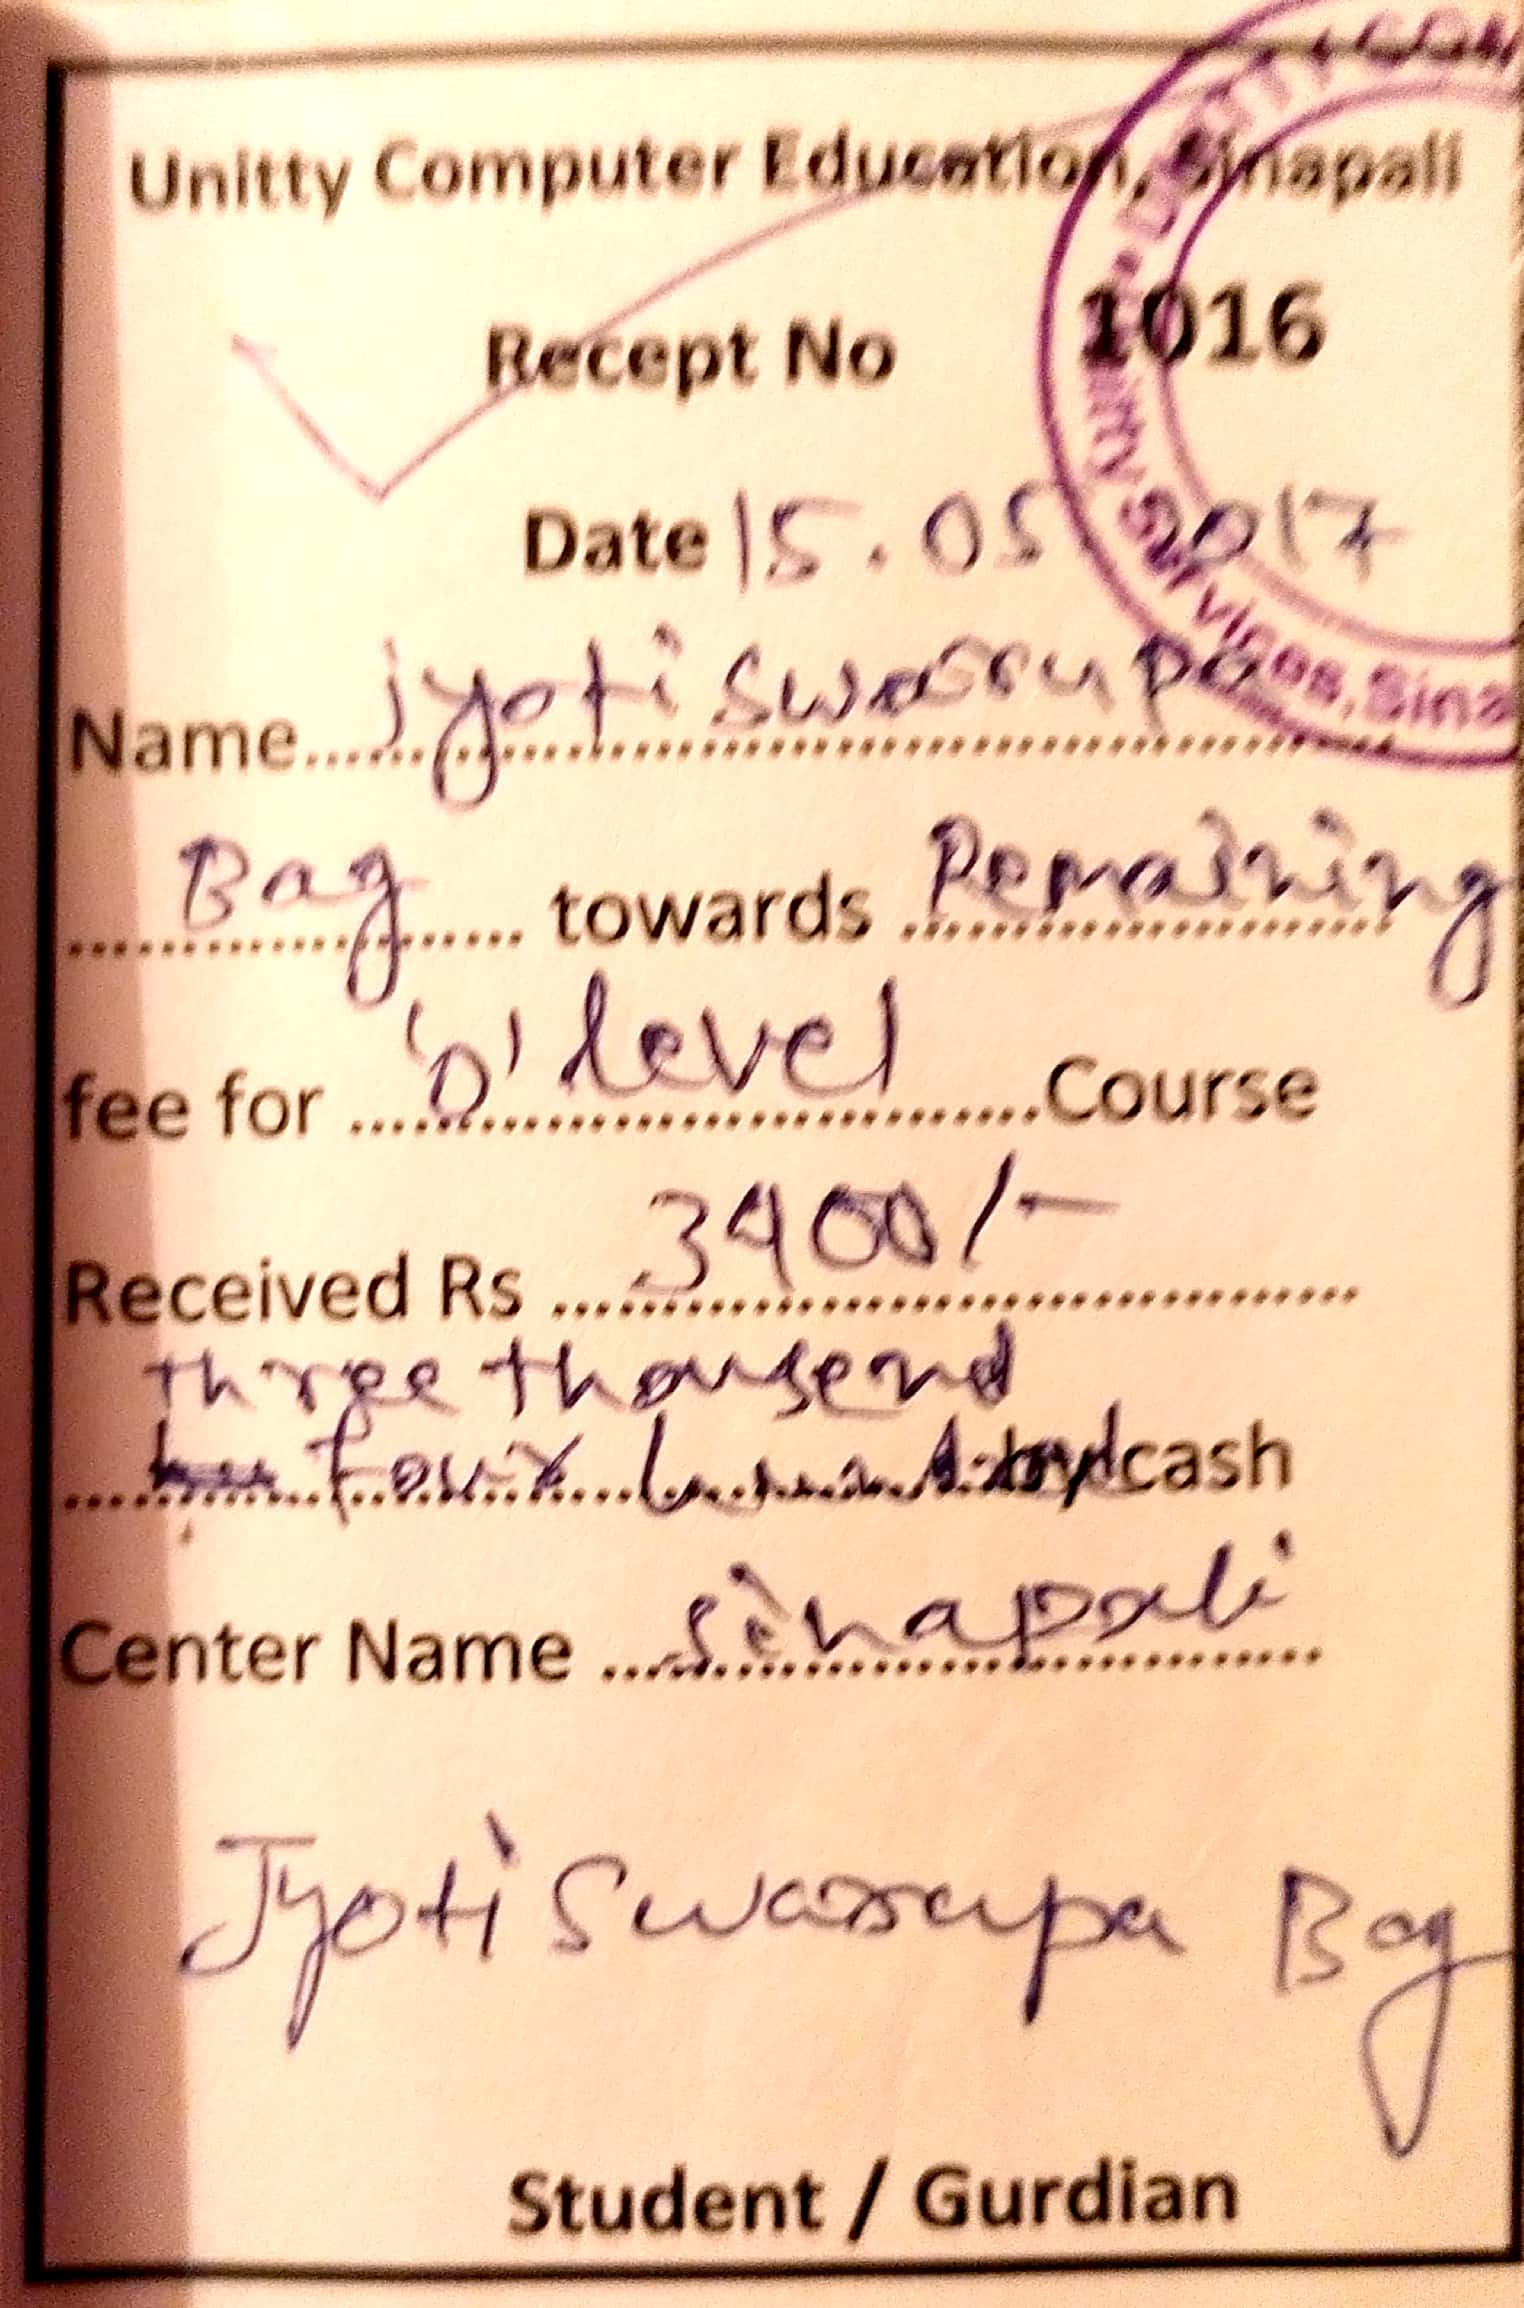 Unitty Computer Education, Sinapali
Recept No 1016
Date 15.05.2017
Name......jyoti swarupa......
......Bag...... towards ......Remaining
fee for ......'O' level......Course
Received Rs ......3400/-......
three thousend
......four hundred......by cash
Center Name ......Sinapali......
Jyoti Swarupa Bag
Student / Gurdian
Services, Sina